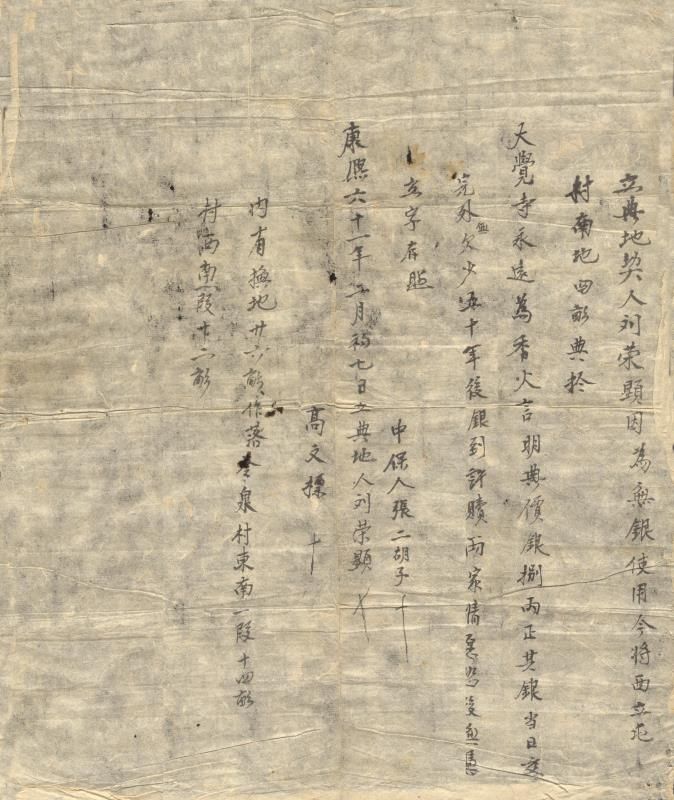 立典地契人刘荣顕因為無銀使用今將西立屯
村南地四畝典扵
大覺寺永遠為香火言明典價銀捌両正其銀当日交
完外無欠少五十年後銀到許贖両家情愿恐後無憑
立字存照
中保人張二胡子 十
康熙六十一年二月初七日立典地人刘荣顕
高文標 十
内有撫地廿六畝作落冷泉村東南一段十四畝
村西南一段十二畝